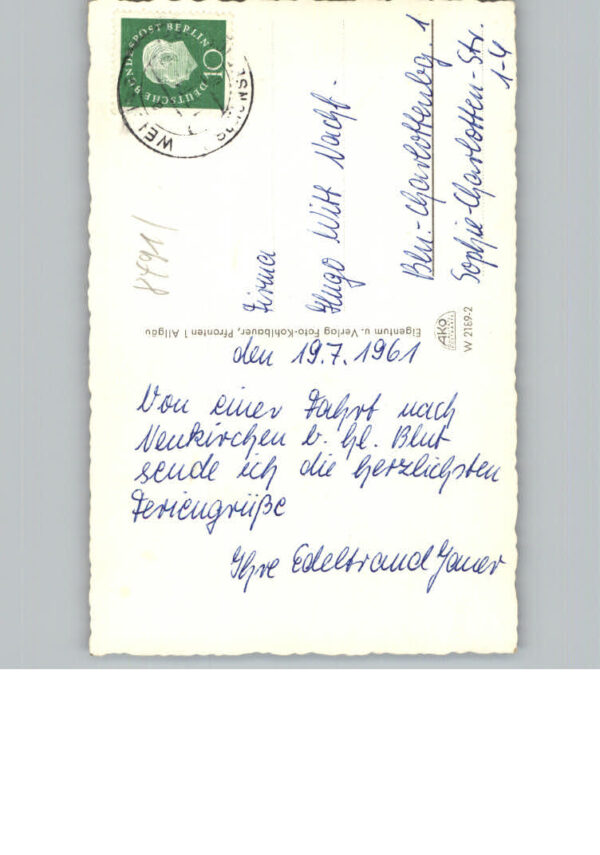 DEUTSCHE BUNDESPOST BERLIN
10
8791/
Firma
Hugo Witt Nachf.
Bln.-Charlottenbg. 1
Sophie-Charlotten-Str.
1-4
Eigentum u. Verlag Foto-Kohlbauer, Pfronten 1 Allgäu
AKO
W 2189-2
den 19.7.1961
Von einer Fahrt nach
Neukirchen b. hl. Blut
sende ich die herzlichsten
Feriengrüße
Ihre Edeltraud